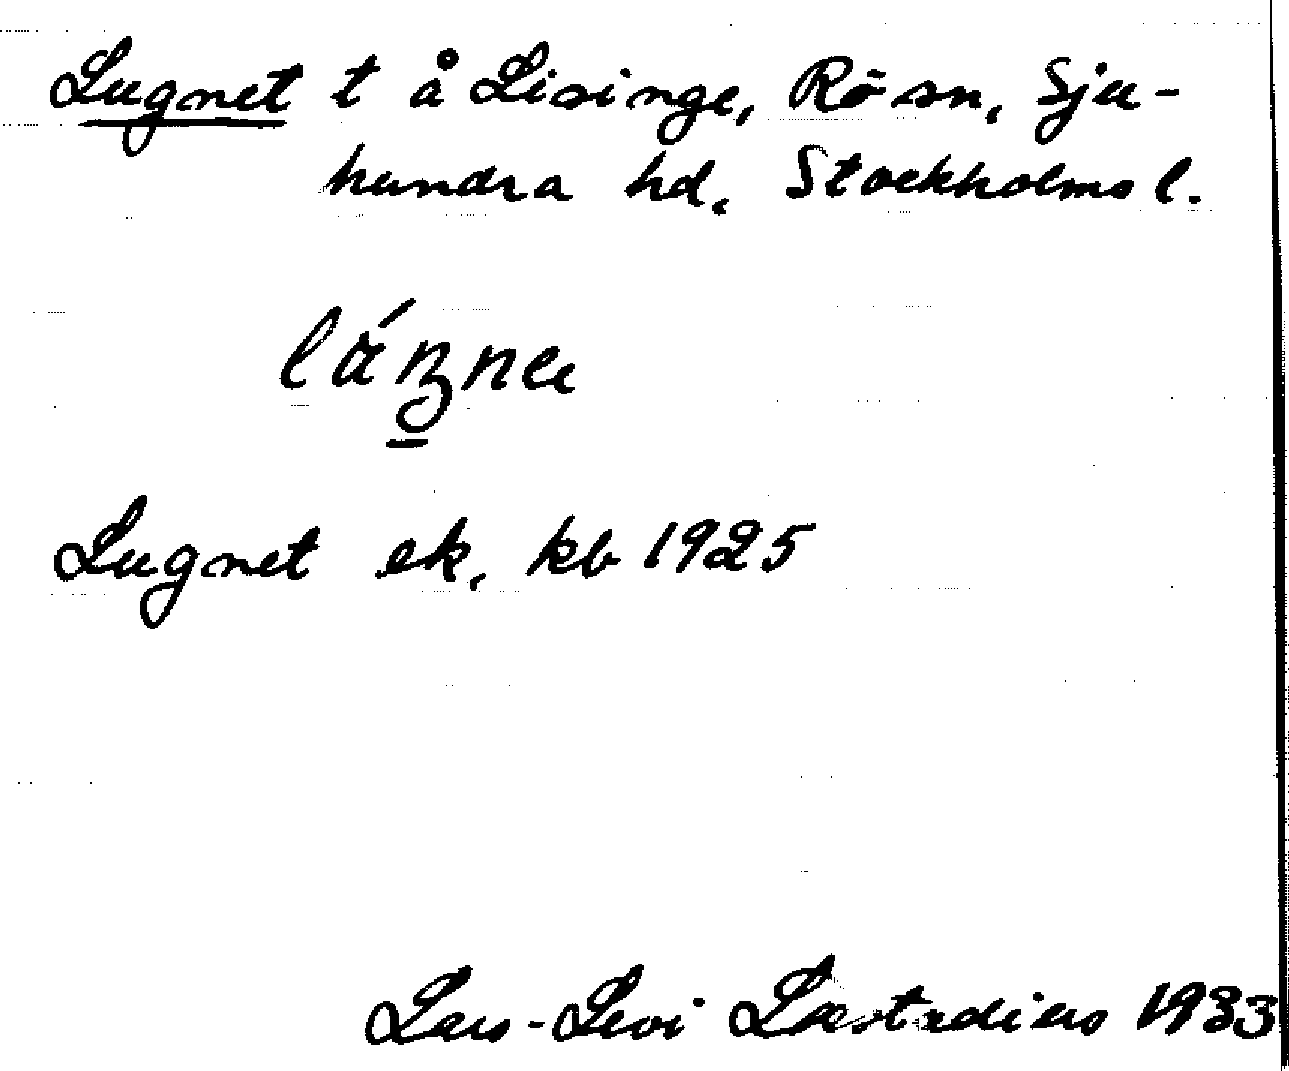 Lugnet t å Lisinge, Rö sn, Sju-
hundra hd. Stockholms l.
Lugnet ek. kb 1925
Lars-Levi Læstadius 1933